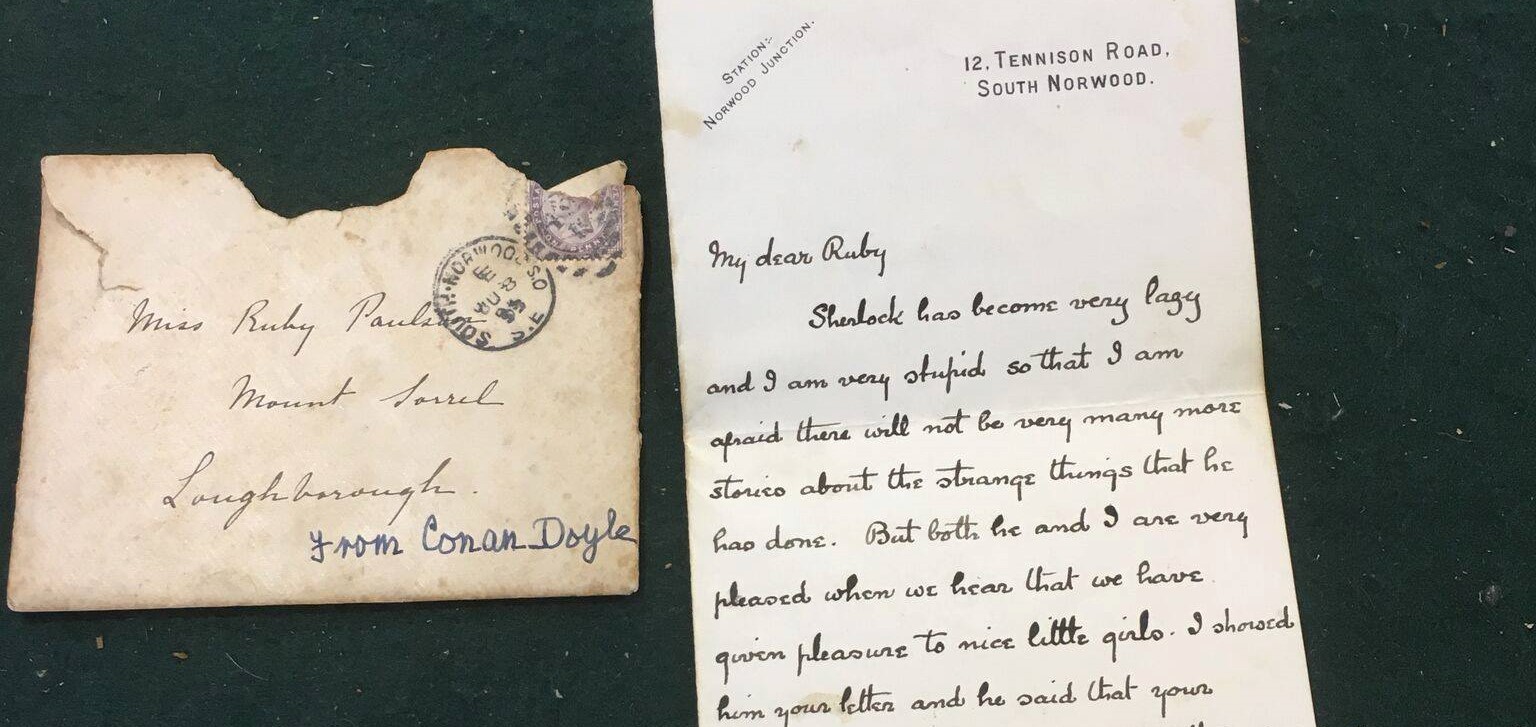 Miss Ruby
Mount Sorrel
Loughborough.
From Conan Doyle
SOUTH·NORWOOD S.O
S.E
STATION:-
NORWOOD JUNCTION.
12, TENNISON ROAD,
SOUTH NORWOOD.
My dear Ruby
Sherlock has become very lazy
and I am very stupid so that I am
afraid there will not be very many more
stories about the strange things that he
has done. But both he and I are very
pleased when we hear that we have
given pleasure to nice little girls. I showed
him your letter and he said that your